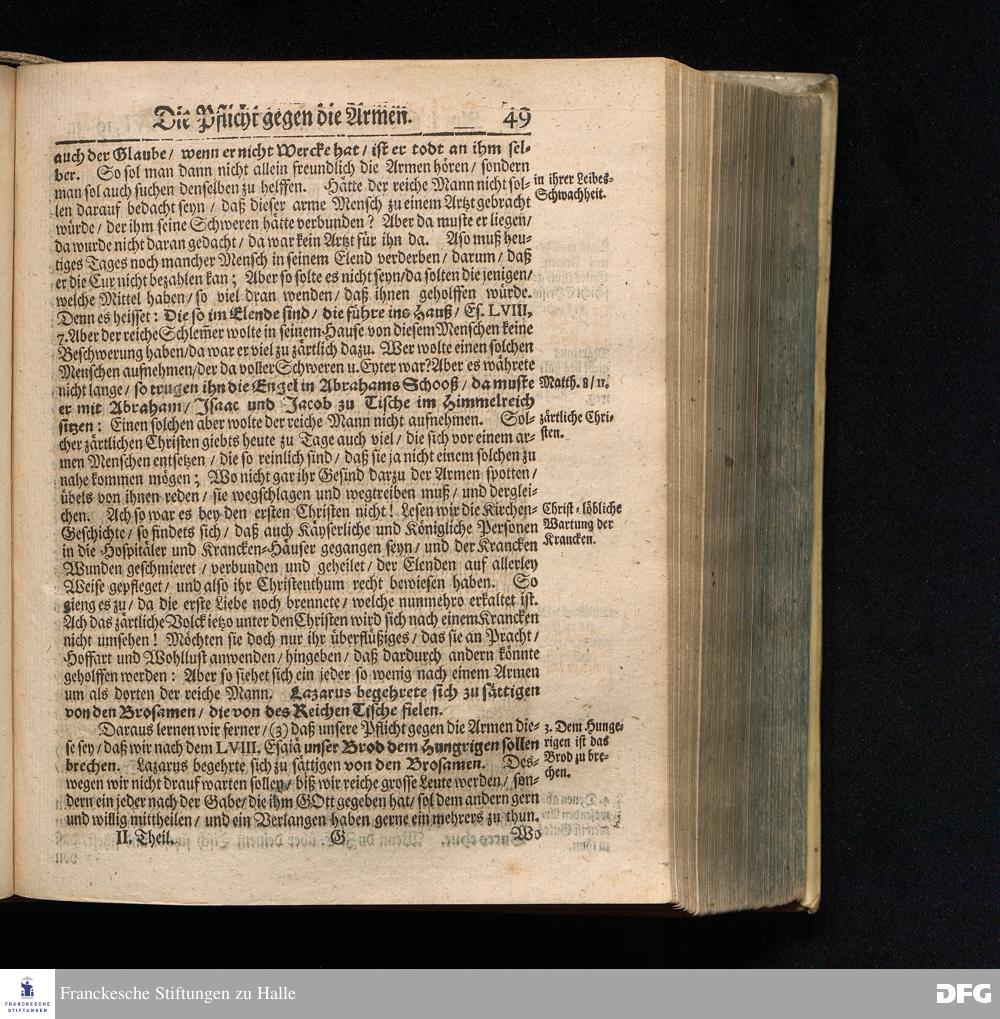 Die Pflicht gegen die Armen. 49
auch der Glaube/ wenn er nicht Wercke hat/ ist er todt an ihm sel-
ber. So sol man dann nicht allein freundlich die Armen hören/ sondern
man sol auch suchen denselben zu helffen. Hätte der reiche Mann nicht sol-
len darauf bedacht seyn/ daß dieser arme Mensch zu einem Artzt gebracht
würde/ der ihm seine Schweren hätte verbunden? Aber da muste er liegen/
da wurde nicht daran gedacht/ da war kein Artzt für ihn da. Also muß heu-
tiges Tages noch mancher Mensch in seinem Elend verderben/ darum/ daß
er die Cur nicht bezahlen kan; Aber so solte es nicht seyn/ da solten die jenigen/
welche Mittel haben/ so viel dran wenden/ daß ihnen geholffen würde.
Denn es heisset: Die so im Elende sind/ die führe ins Hauß/ Es. LVIII,
7. Aber der reiche Schlem̃er wolte in seinem Hause von diesem Menschen keine
Beschwerung haben/ da war er viel zu zärtlich dazu. Wer wolte einen solchen
Menschen aufnehmen/ der da voller Schweren u. Eyter war? Aber es währete
nicht lange/ so trugen ihn die Engel in Abrahams Schooß/ da muste
er mit Abraham/ Isaac und Jacob zu Tische im Himmelreich
sitzen: Einen solchen aber wolte der reiche Mann nicht aufnehmen. Sol-
cher zärtlichen Christen giebts heute zu Tage auch viel/ die sich vor einem ar-
men Menschen entsetzen/ die so reinlich sind/ daß sie ja nicht einem solchen zu
nahe kommen mögen; Wo nicht gar ihr Gesind darzu der Armen spotten/
übels von ihnen reden/ sie wegschlagen und wegtreiben muß/ und derglei-
chen. Ach so war es bey den ersten Christen nicht! Lesen wir die Kirchen-
Geschichte/ so findets sich/ daß auch Käyserliche und Königliche Personen
in die Hospitäler und Krancken-Häuser gegangen seyn/ und der Krancken
Wunden geschmieret/ verbunden und geheilet/ der Elenden auf allerley
Weise gepfleget/ und also ihr Christenthum recht bewiesen haben. So
gieng es zu/ da die erste Liebe noch brennete/ welche nunmehro erkaltet ist.
Ach das zärtliche Volck ietzo unter den Christen wird sich nach einem Krancken
nicht umsehen! Möchten sie doch nur ihr überflüßiges/ das sie an Pracht/
Hoffart und Wohllust anwenden/ hingeben/ daß dardurch andern könnte
geholffen werden: Aber so siehet sich ein jeder so wenig nach einem Armen
um als dorten der reiche Mann. Lazarus begehrete sich zu sättigen
von den Brosamen/ die von des Reichen Tische fielen.
Daraus lernen wir ferner/ (3) daß unsere Pflicht gegen die Armen die-
se sey/ daß wir nach dem LVIII. Esaiä unser Brod dem Hungrigen sollen
brechen. Lazarus begehrte sich zu sättigen von den Brosamen. Des-
wegen wir nicht drauf warten sollen/ biß wir reiche grosse Leute werden/ son-
dern ein jeder nach der Gabe/ die ihm GOtt gegeben hat/ sol dem andern gern
und willig mittheilen/ und ein Verlangen haben gerne ein mehrers zu thun.
II. Theil. G Wo
in ihrer Leibes-
Schwachheit.
Matth. 8/ 11.
zärtliche Chri-
sten.
Christ-löbliche
Wartung der
Krancken.
3. Dem Hunge-
rigen ist das
Brod zu bre-
chen.
FRANCKESCHE
STIFTUNGEN
Franckesche Stiftungen zu Halle
DFG